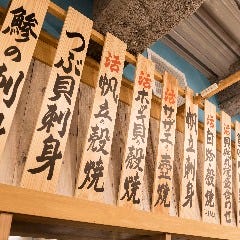 鯵の刺
つぶ貝刺身
活帆立殻焼
活ホッキ貝の殻焼
活サザエ壺焼
帆立刺身
活白蛤殻焼